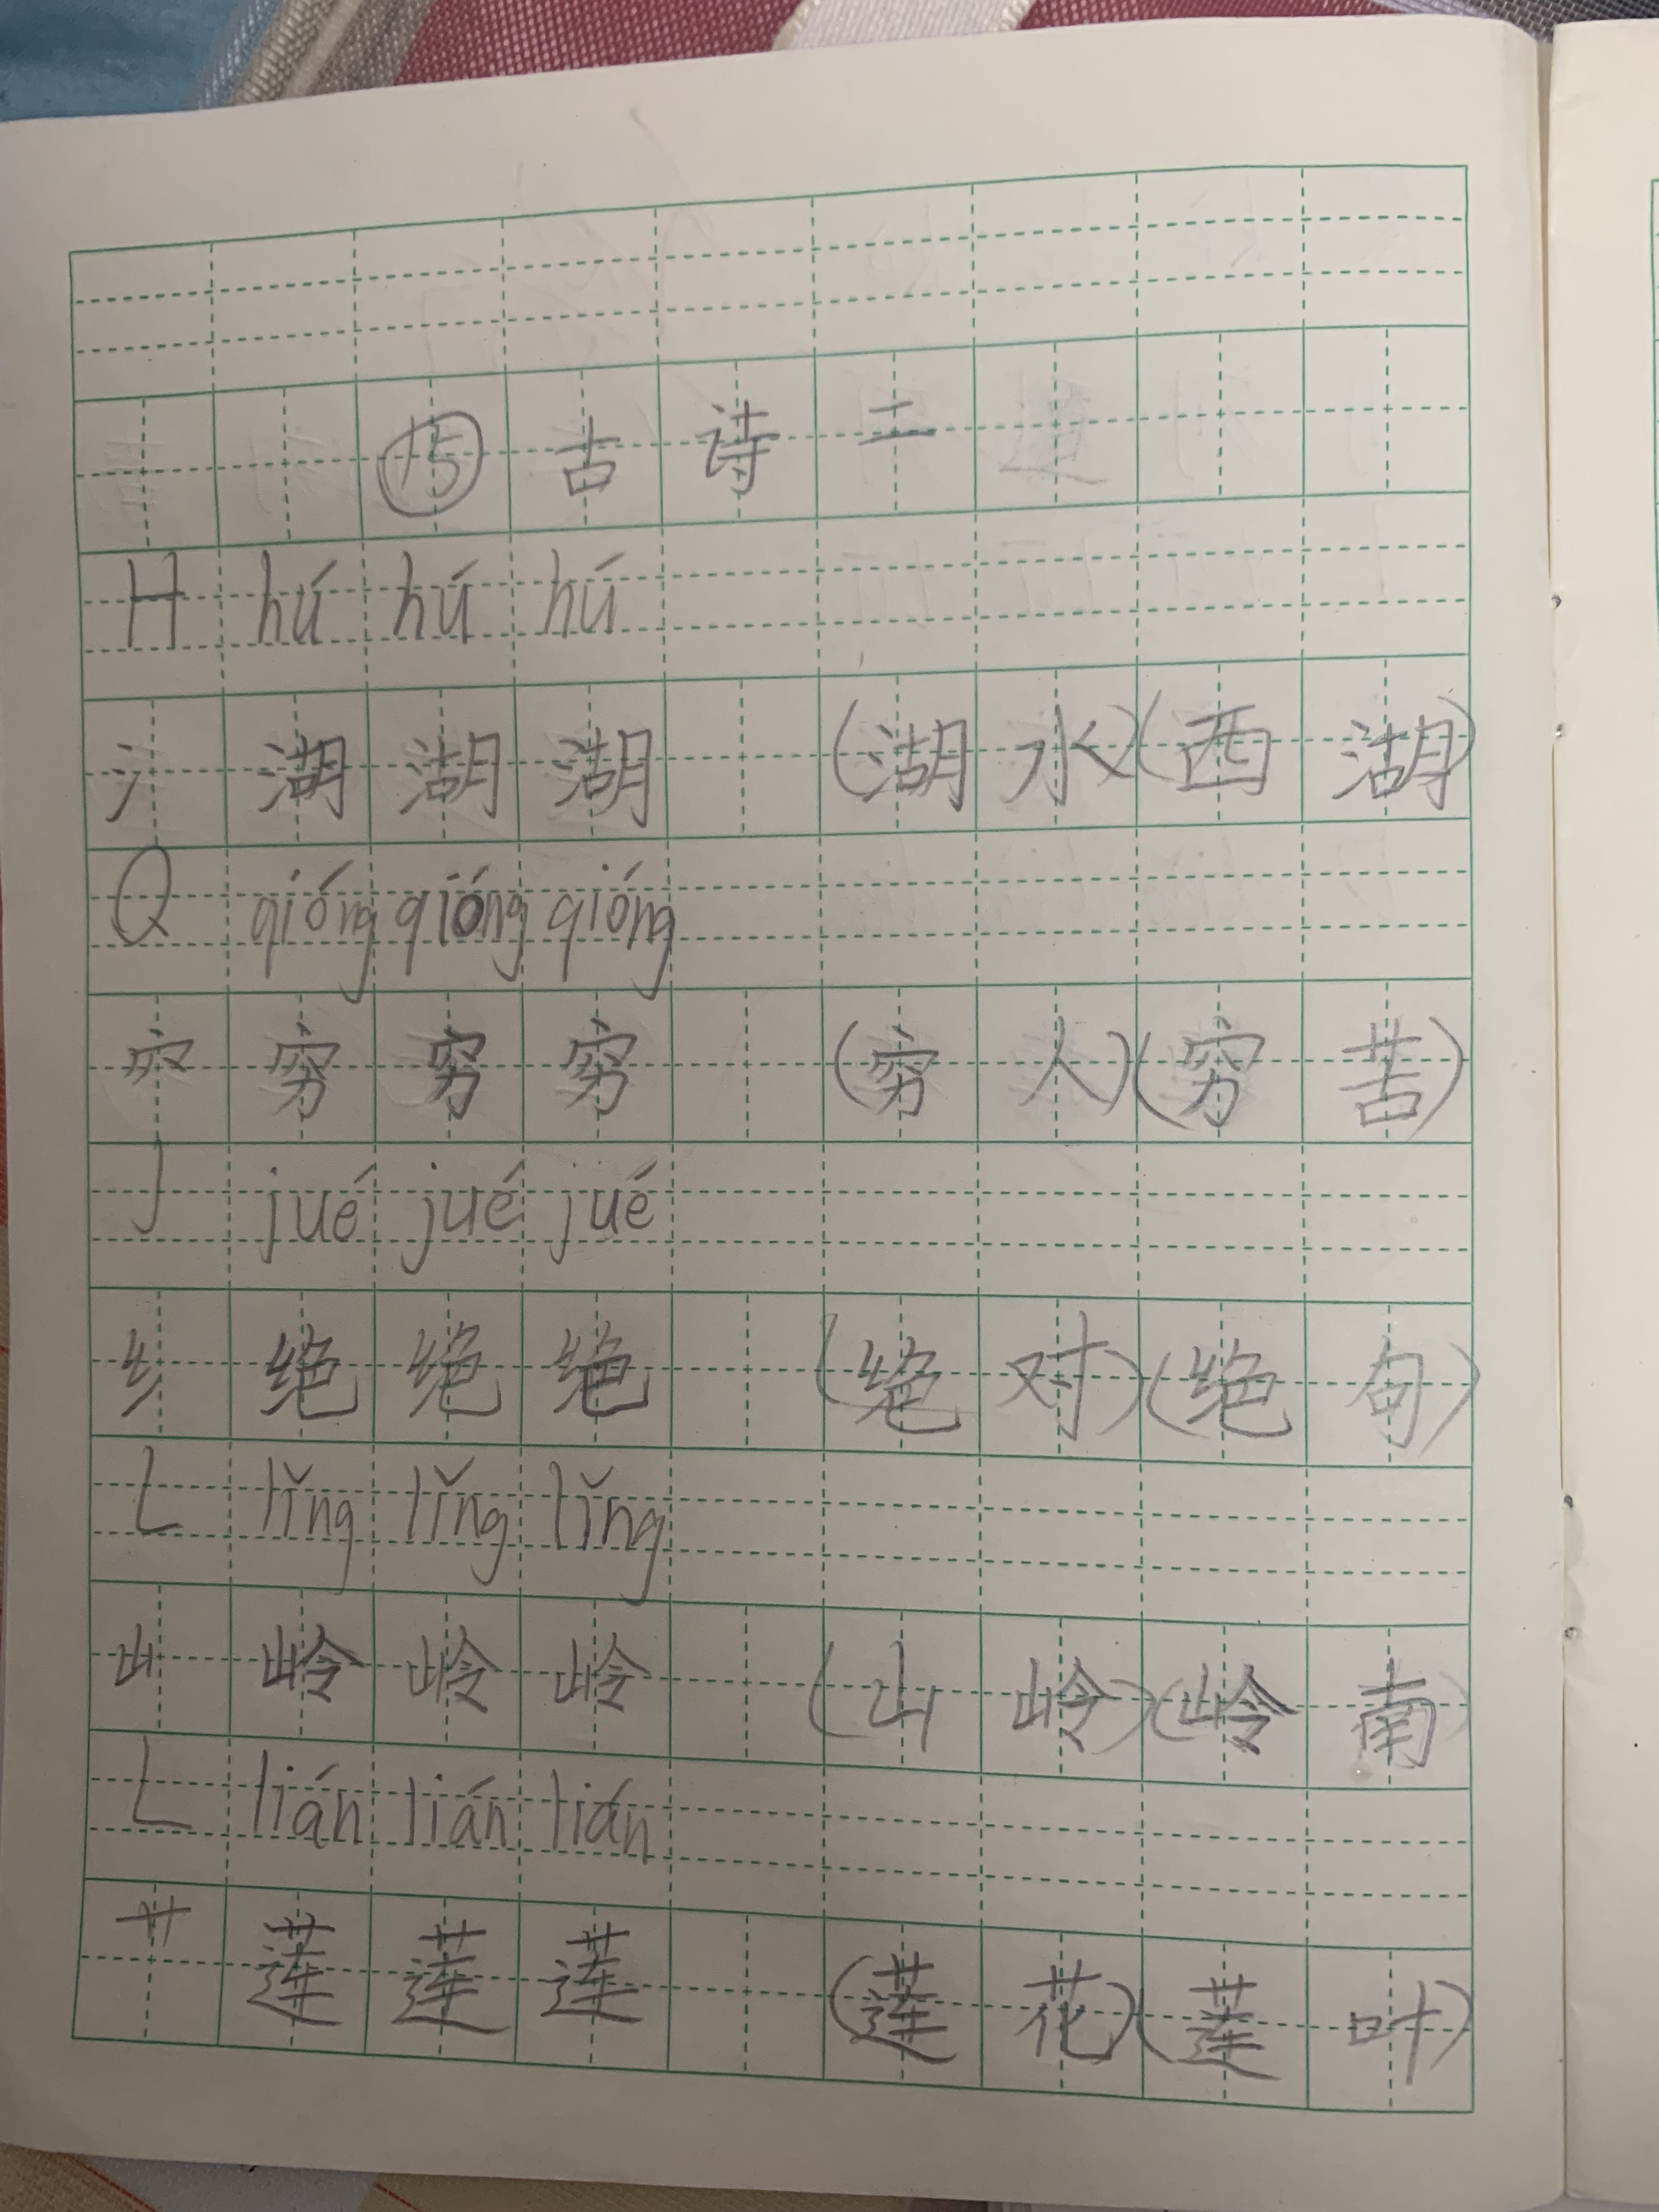 ⑮ 古诗二
H hú hú hú
氵 湖 湖 湖 (湖水)(西湖)
Q qióng qióng qióng
穴 穷 穷 穷 (穷人)(穷苦)
J jué jué jué
纟 绝 绝 绝 (绝对)(绝句)
L lǐng lǐng lǐng
山 岭 岭 岭 (山岭)(岭南)
L lián lián lián
艹 莲 莲 莲 (莲花)(莲叶)